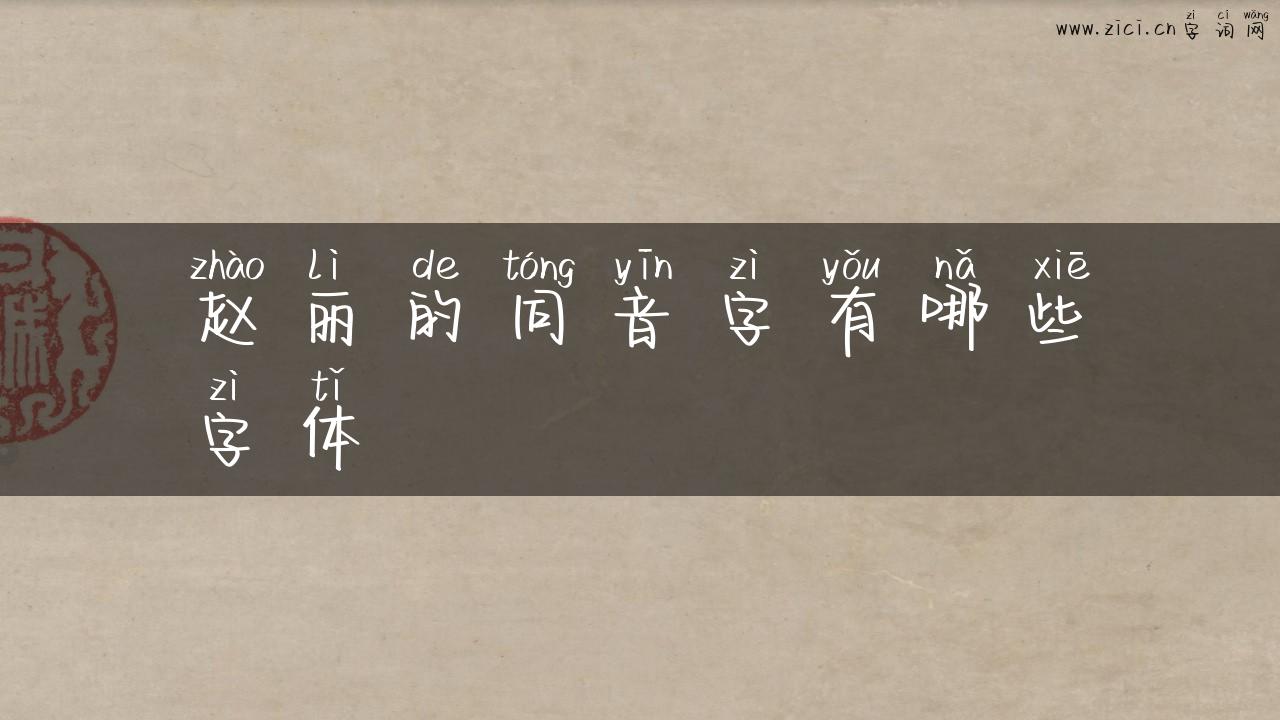 zì cí wǎng
www.zici.cn 字词网
zhào lì de tóng yīn zì yǒu nǎ xiē
赵丽的同音字有哪些
zì tǐ
字体